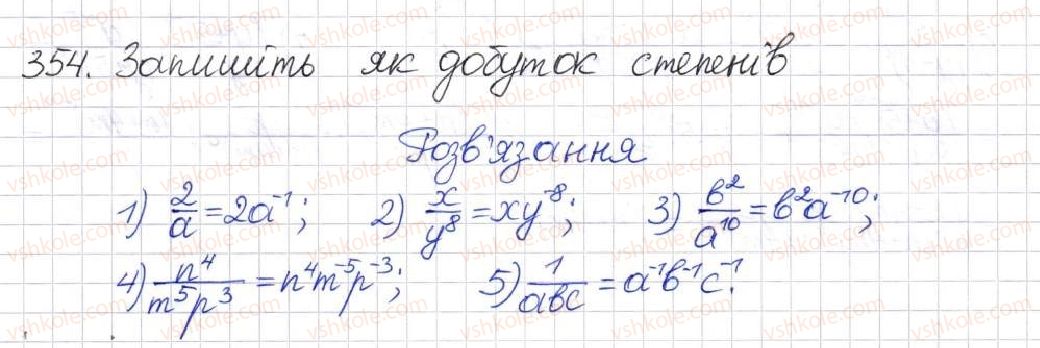 354. Запишіть як добуток степенів
Розв'язання
1) 2/a = 2a⁻¹; 2) x/y⁸ = xy⁻⁸; 3) b²/a¹⁰ = b²a⁻¹⁰;
4) n⁴/m⁵p³ = n⁴m⁻⁵p⁻³; 5) 1/abc = a⁻¹b⁻¹c⁻¹.